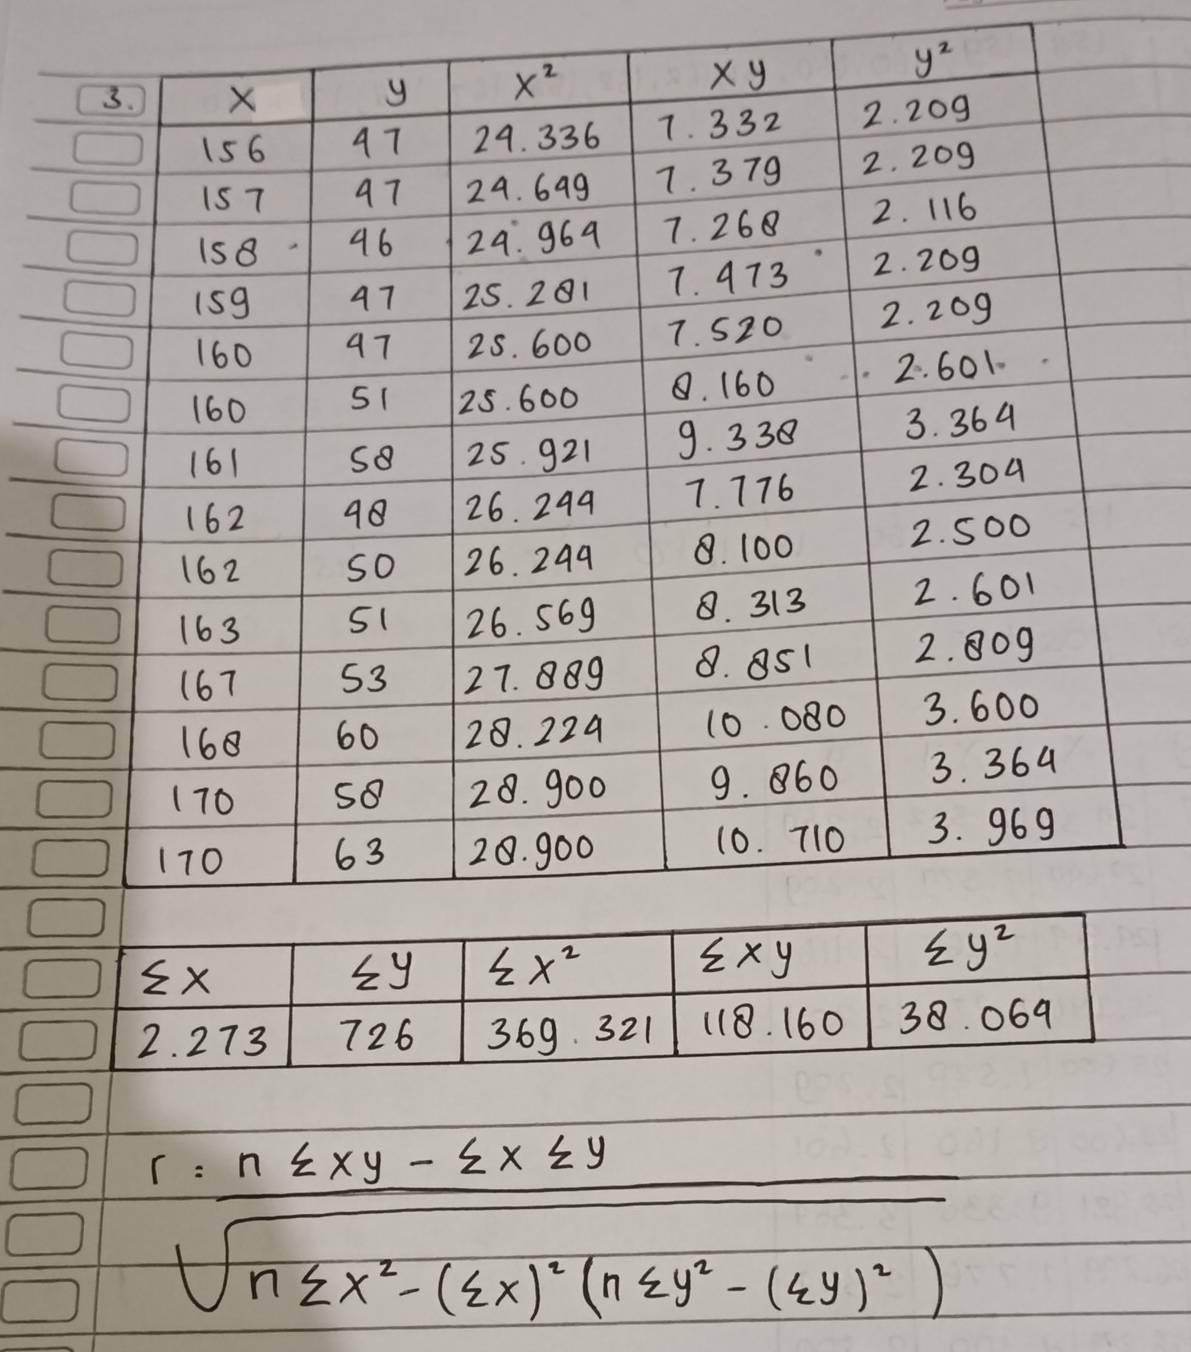 3. x y x² xy y²
156 47 24.336 7.332 2.209
157 47 24.649 7.379 2.209
158 46 24.964 7.268 2.116
159 47 25.281 7.473 2.209
160 47 25.600 7.520 2.209
160 51 25.600 8.160 2.601
161 58 25.921 9.338 3.364
162 48 26.244 7.776 2.304
162 50 26.244 8.100 2.500
163 51 26.569 8.313 2.601
167 53 27.889 8.851 2.809
168 60 28.224 10.080 3.600
170 58 28.900 9.860 3.364
170 63 28.900 10.710 3.969
Σx Σy Σx² Σxy Σy²
2.273 726 369.321 118.160 38.064
r = n Σxy - Σx Σy
√n Σx² - (Σx)² (n Σy² - (Σy)²)